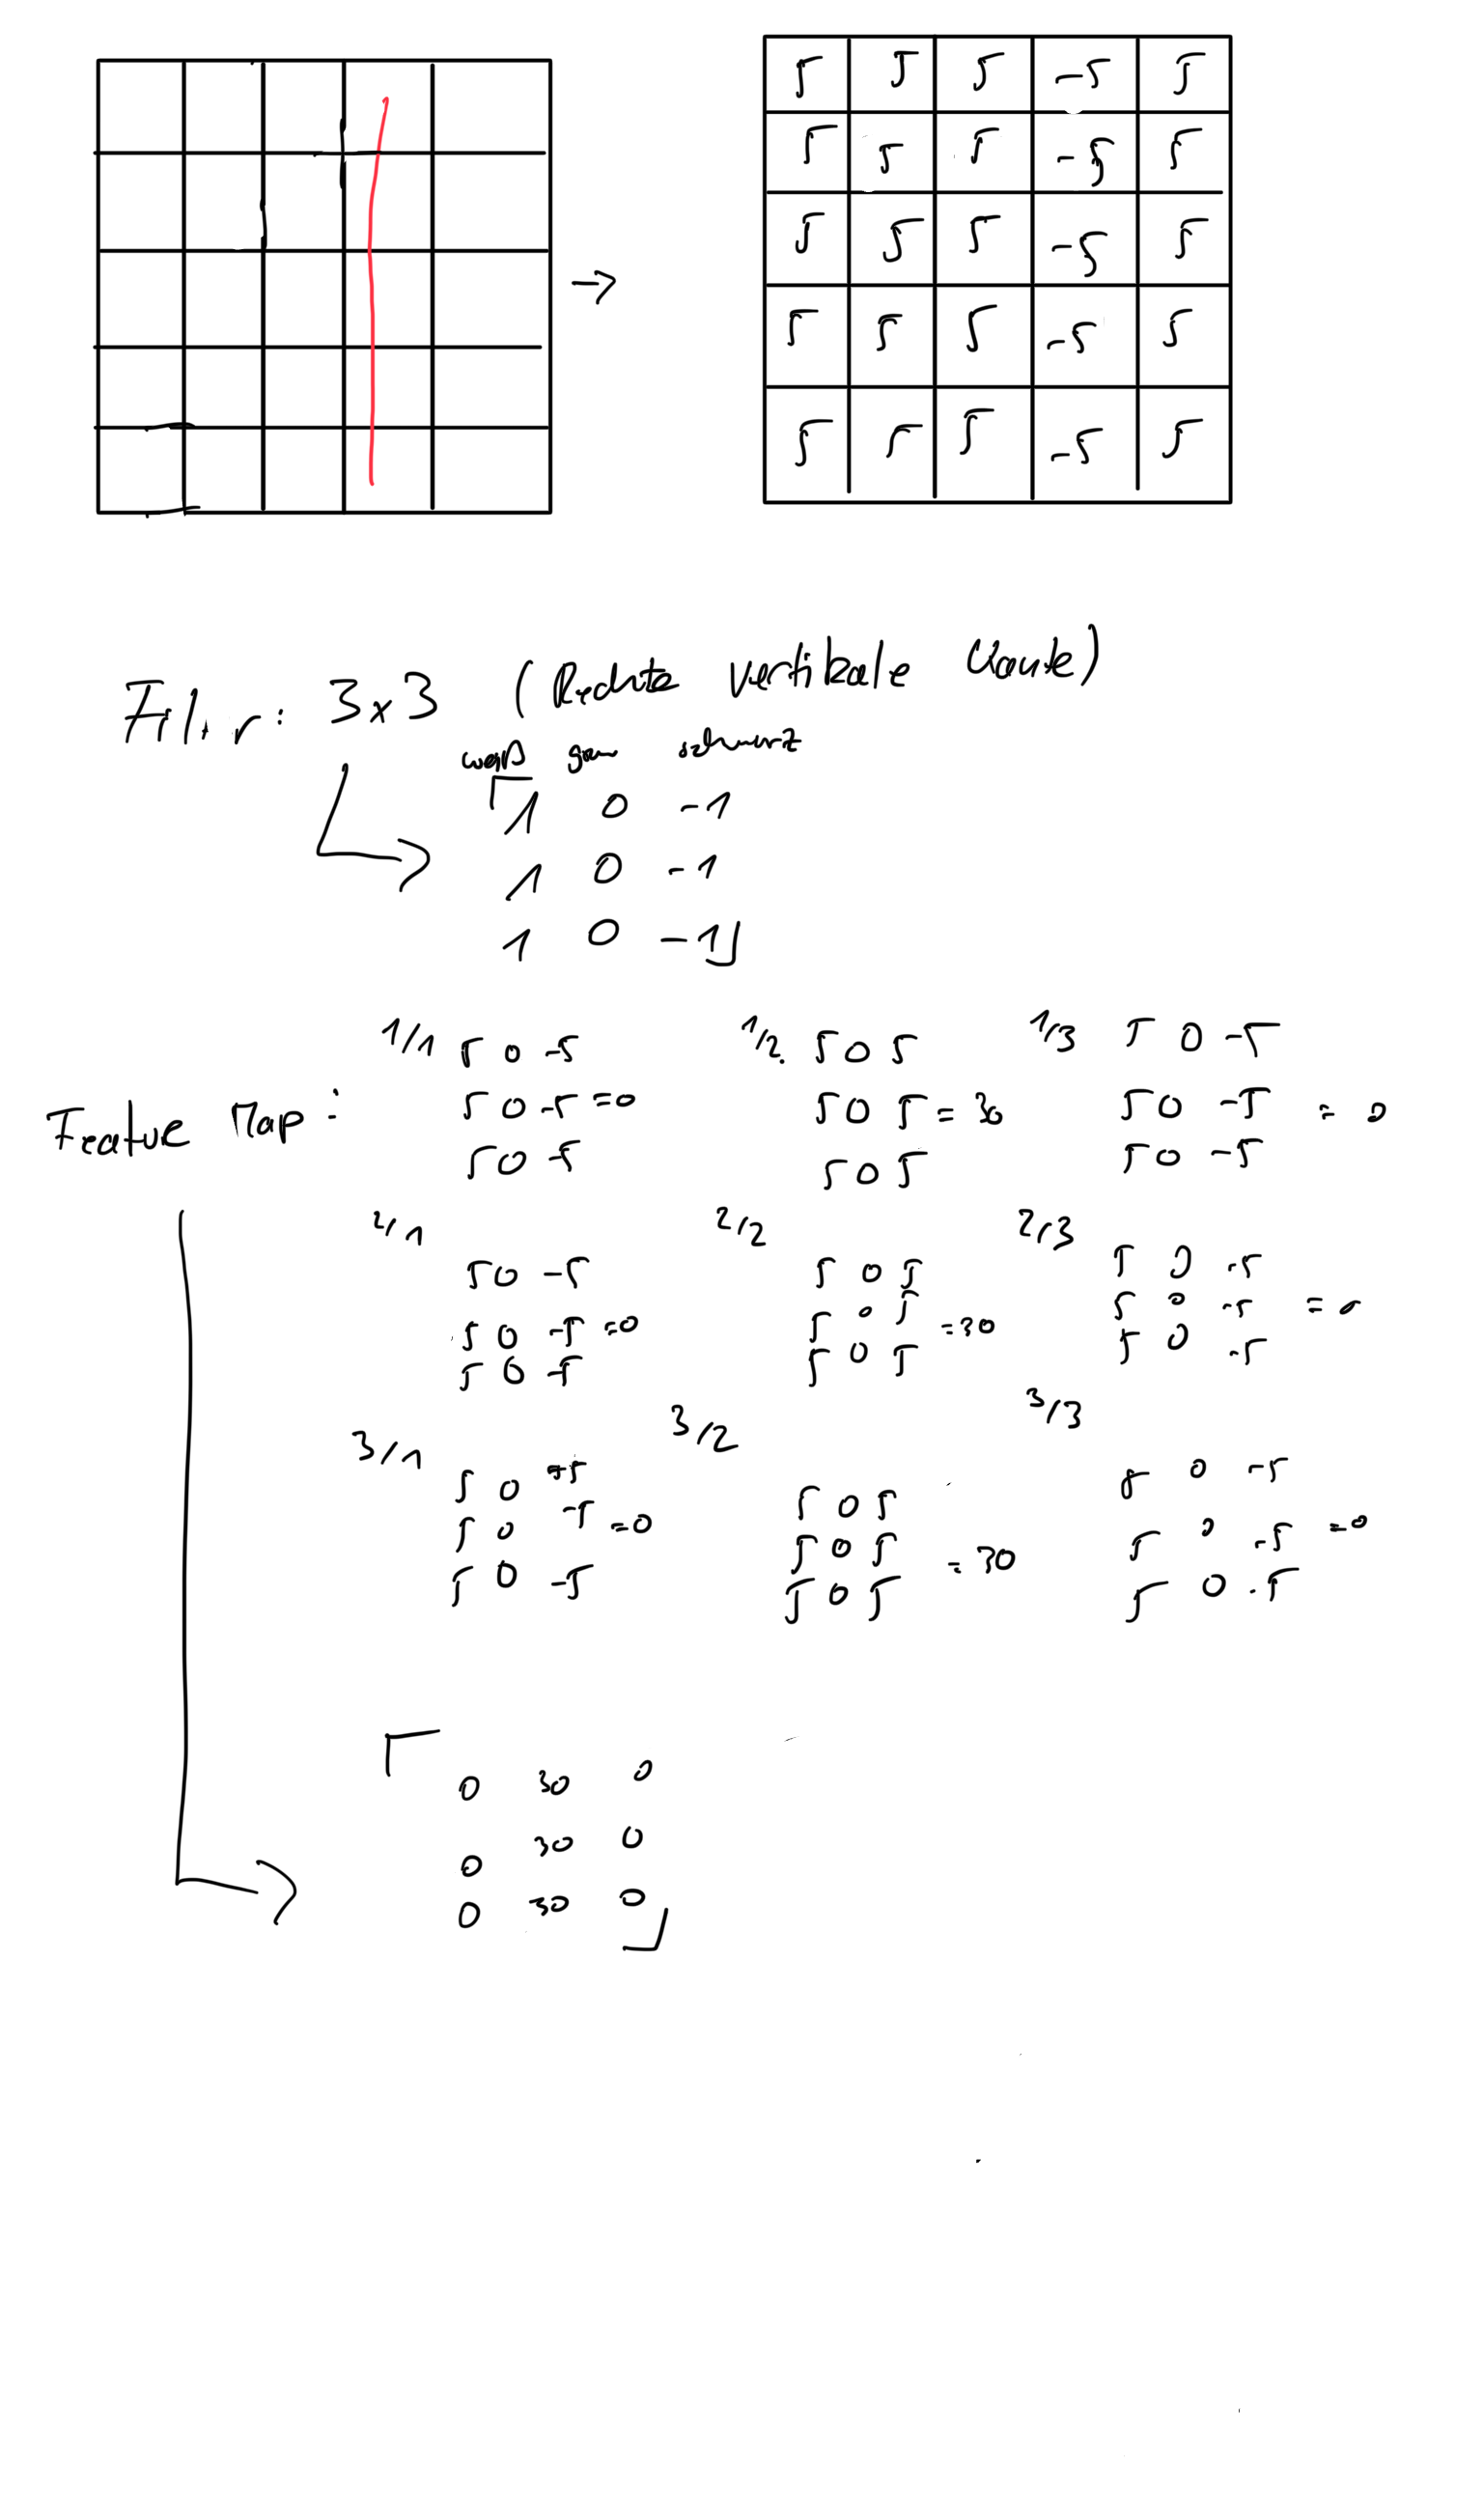 5 5 5 -5 5
5 5 5 -5 5
5 5 5 -5 5
5 5 5 -5 5
5 5 5 -5 5
Filter: 3x3 (Rechte vertikale Kante)
weiß grau schwarz
1 0 -1
1 0 -1
1 0 -1
Feature Map:
1/1
5 0 -5
5 0 -5 =0
5 0 -5
1/2
5 0 5
5 0 5 = 30
5 0 5
1/3
5 0 -5
5 0 -5 = 0
5 0 -5
2/1
5 0 -5
5 0 -5 =0
5 0 -5
2/2
5 0 5
5 0 5 =30
5 0 5
2/3
5 0 -5
5 0 -5 = 0
5 0 -5
3/1
5 0 -5
5 0 -5 =0
5 0 -5
3/2
5 0 5
5 0 5 = 30
5 0 5
3/3
5 0 -5
5 0 -5 =0
5 0 -5
0 30 0
0 30 0
0 30 0